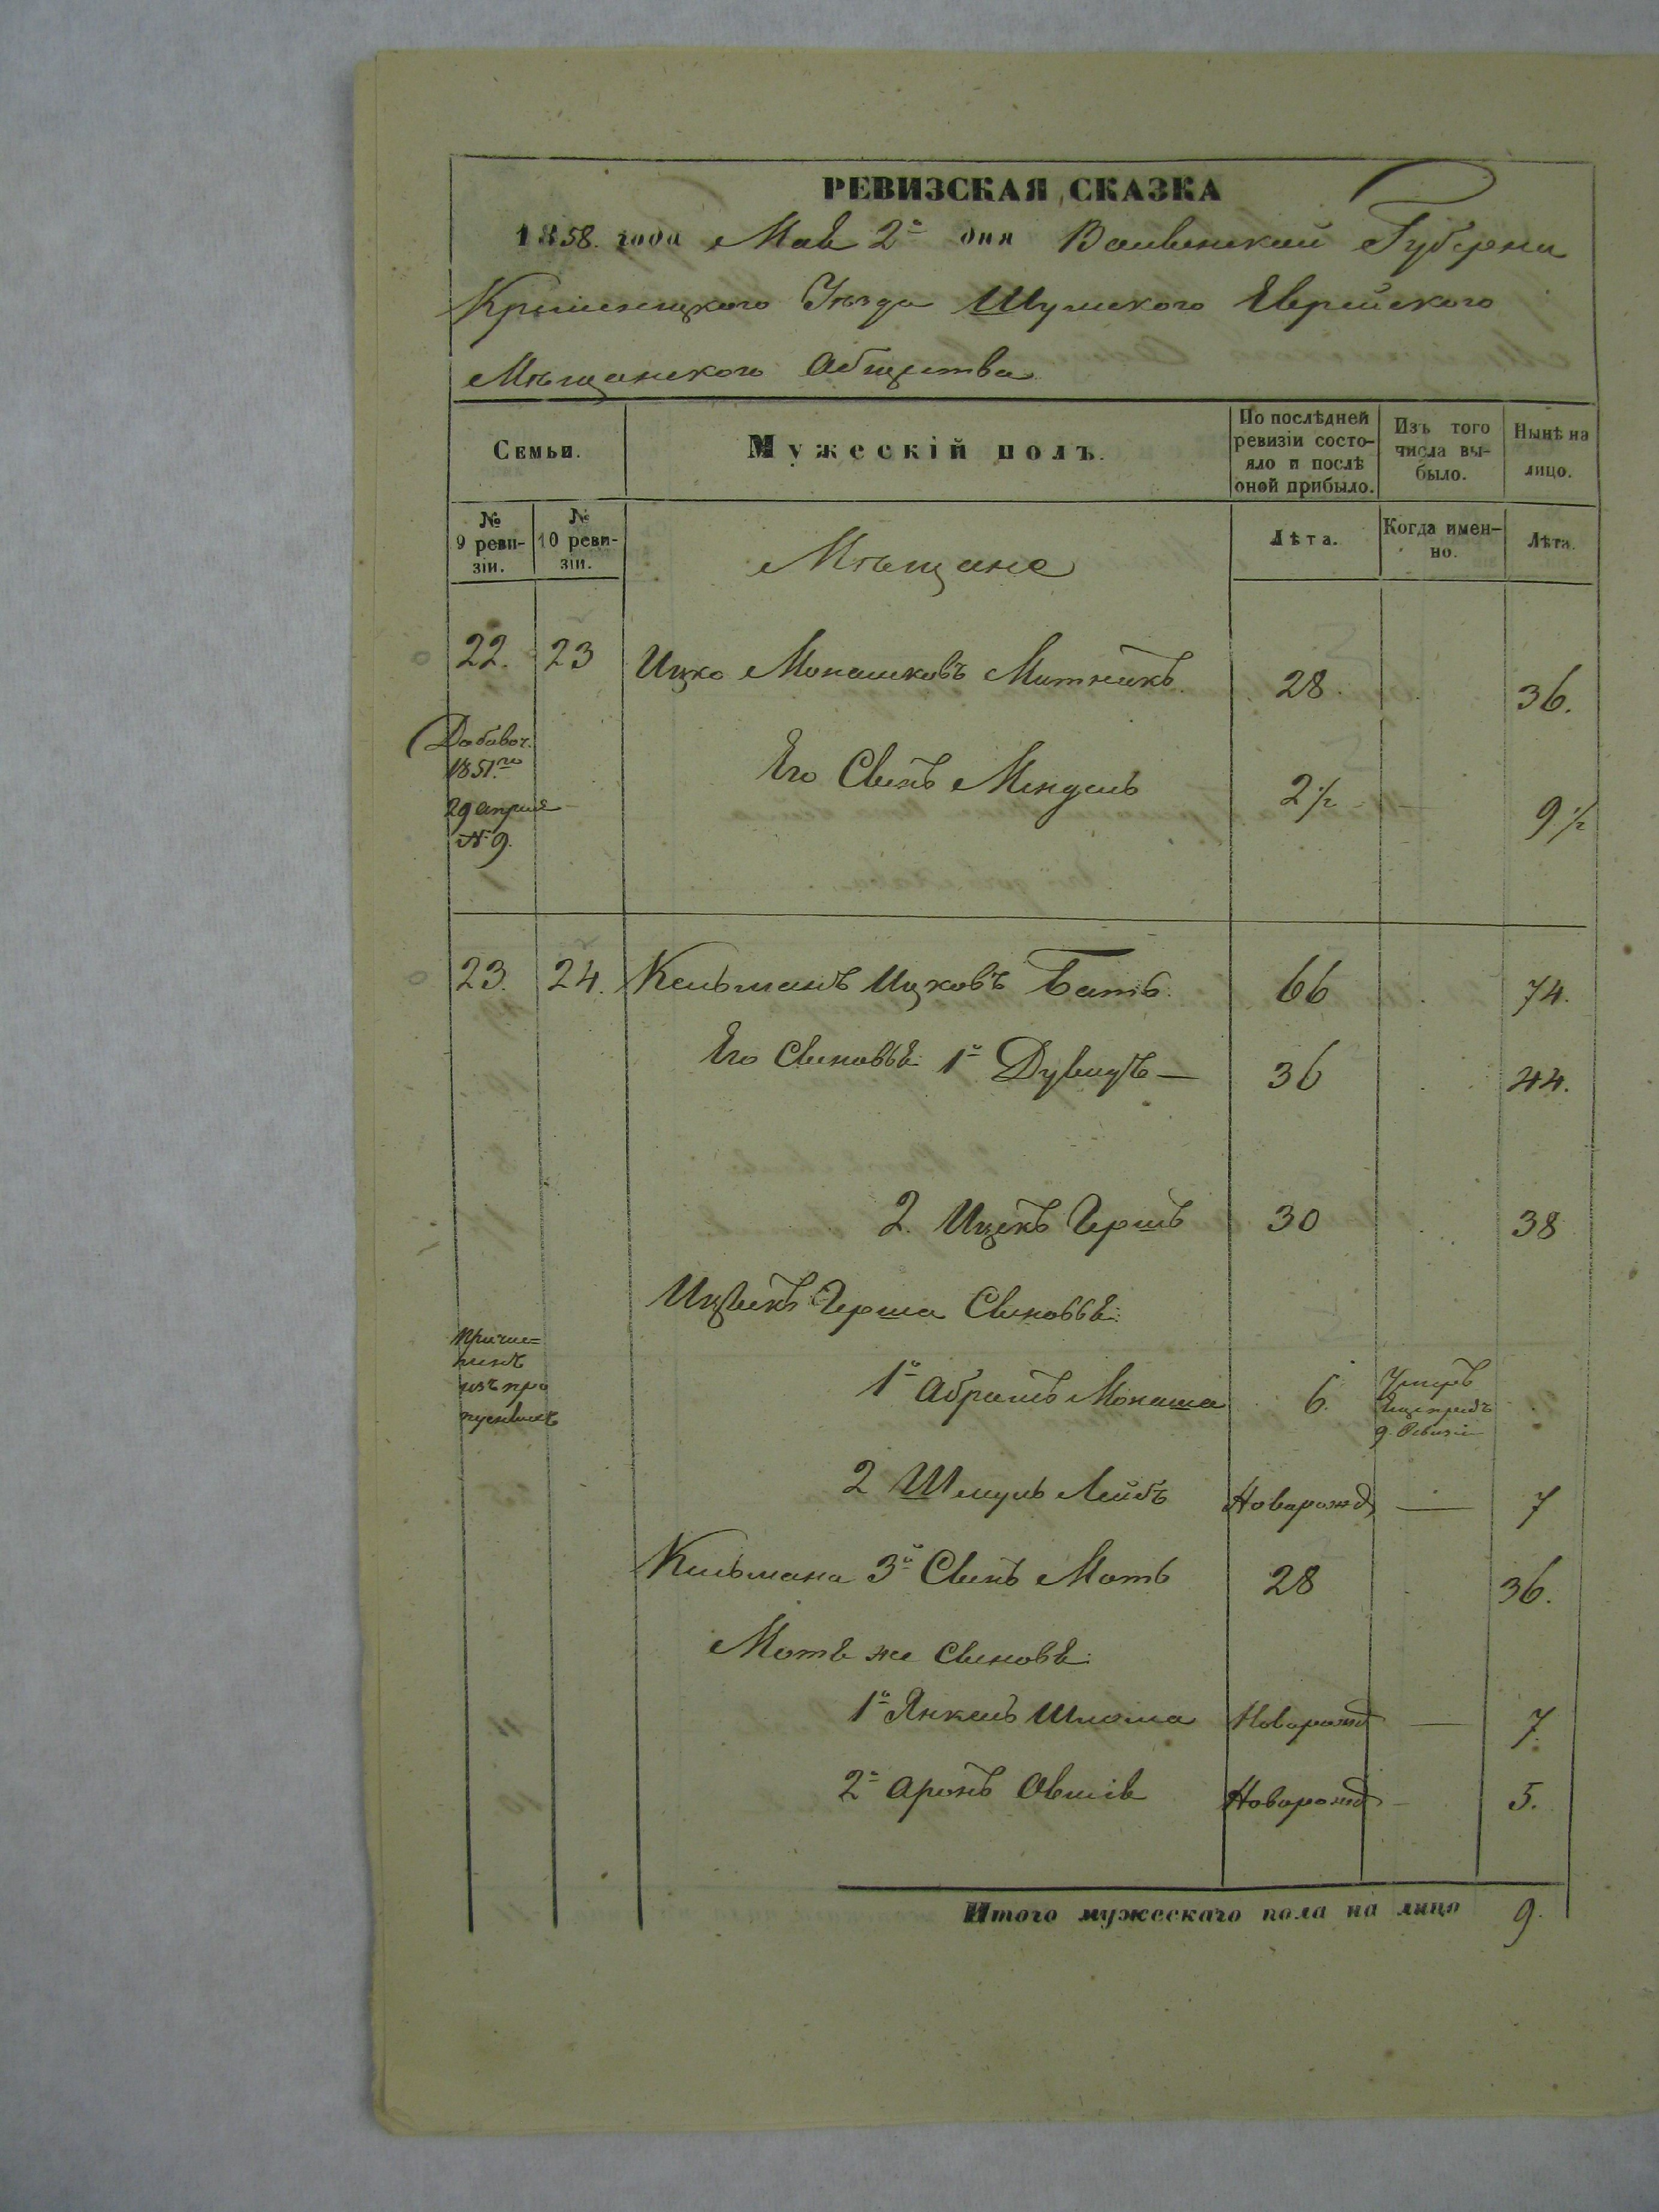 РЕВИЗСКАЯ СКАЗКА
1858. года Мая 2го дня Волынской Губерни
Кременецкого Уѣзда Шумского Еврейского
Мѣщанского Общества
Семьи.
Мужескій полъ.
По послѣдней ревизіи состояло и послѣ оной прибыло.
Изъ того числа выбыло.
Нынѣ на лицо.
№ 9 ревизіи.
№ 10 ревизіи.
Мѣщане
Лѣта.
Когда именно.
Лѣта.
22. 23 Ицко Монашковъ Митникъ 28. 36.
Добавоч.
1851.го
29 апрѣля
№ 9.
Его Сынъ Мендель 2 1/2 — 9 1/2
23. 24. Кельманъ Ицковъ Батъ 66 74.
Его Сыновья 1й Дувидъ — 36 44.
2. Ицекъ Гершъ 30 38
Ицекъ Герша Сыновья:
Причис=
ленъ
изъ про
1й Абрамъ Монаша 6. Умеръ
9. Ревизіи
2 Шмуль Лейбъ Новорожд — 7
Кельмана 3й Сынъ Моть 28 36.
Мотя же Сыновья:
1й Янкель Шлома Новорожд — 7.
2й Аронъ Овшія Новорожд — 5.
Итого мужескаго пола на лицо 9.